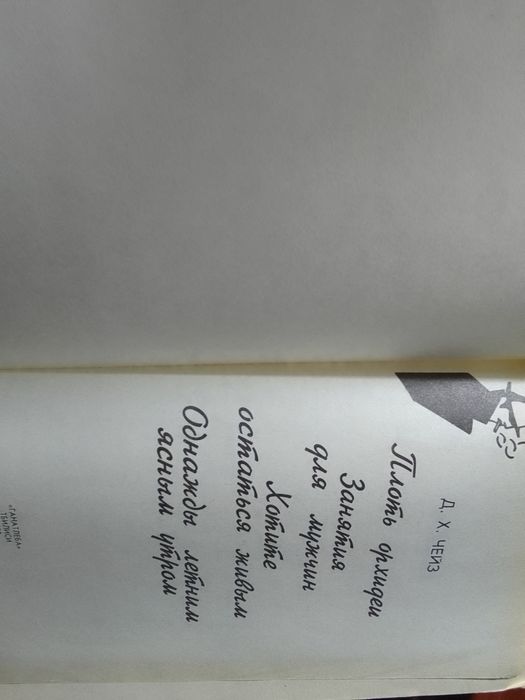 Д. Х. ЧЕЙЗ
Плоть орхидеи
Занятия
для мужчин
Хотите
остаться живым
Однажды летним
ясным утром
«ГАНАТЛЕБА»
ТБИЛИСИ